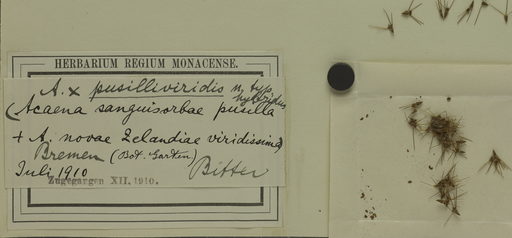 HERBARIUM REGIUM MONACENSE.
A. x pusilliviridis n. typ. hybridus
(Acaena sanguisorbae pusilla
+ A. novae Zelandiae viridissima)
Bremen (Bot. Garten)
Juli 1910 Bitter
Zugegangen XII. 1910.